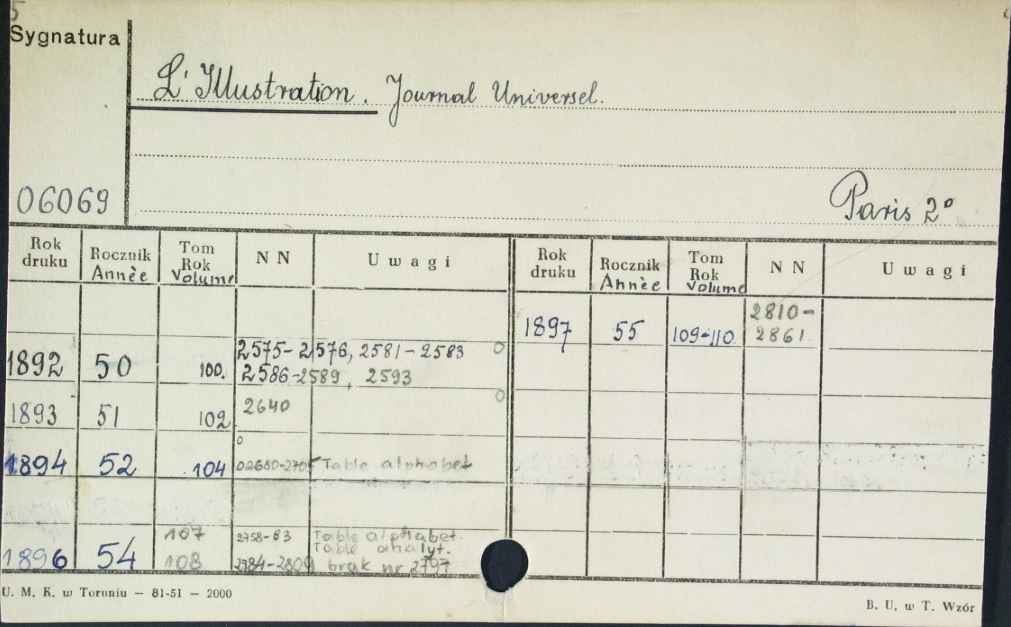 5
Sygnatura
L'Illustration. Journal Universel.
06069
Paris 2°
Rok druku Rocznik Annèe Tom Rok Volume NN Uwagi
1892 50 100. 2575-2576, 2581-2583 o
2586-2589, 2593
1893 51 102 2640 o
1894 52 104 Table alphabet
1896 54 107 2758-83 Table alphabet.
Table analyt.
108 2784-2809 brak nr 2797
Rok druku Rocznik Annèe Tom Rok Volume NN Uwagi
1897 55 109-110 2810-
2861
U. M. K. w Toruniu — 81-51 — 2000
B. U. w T. Wzór